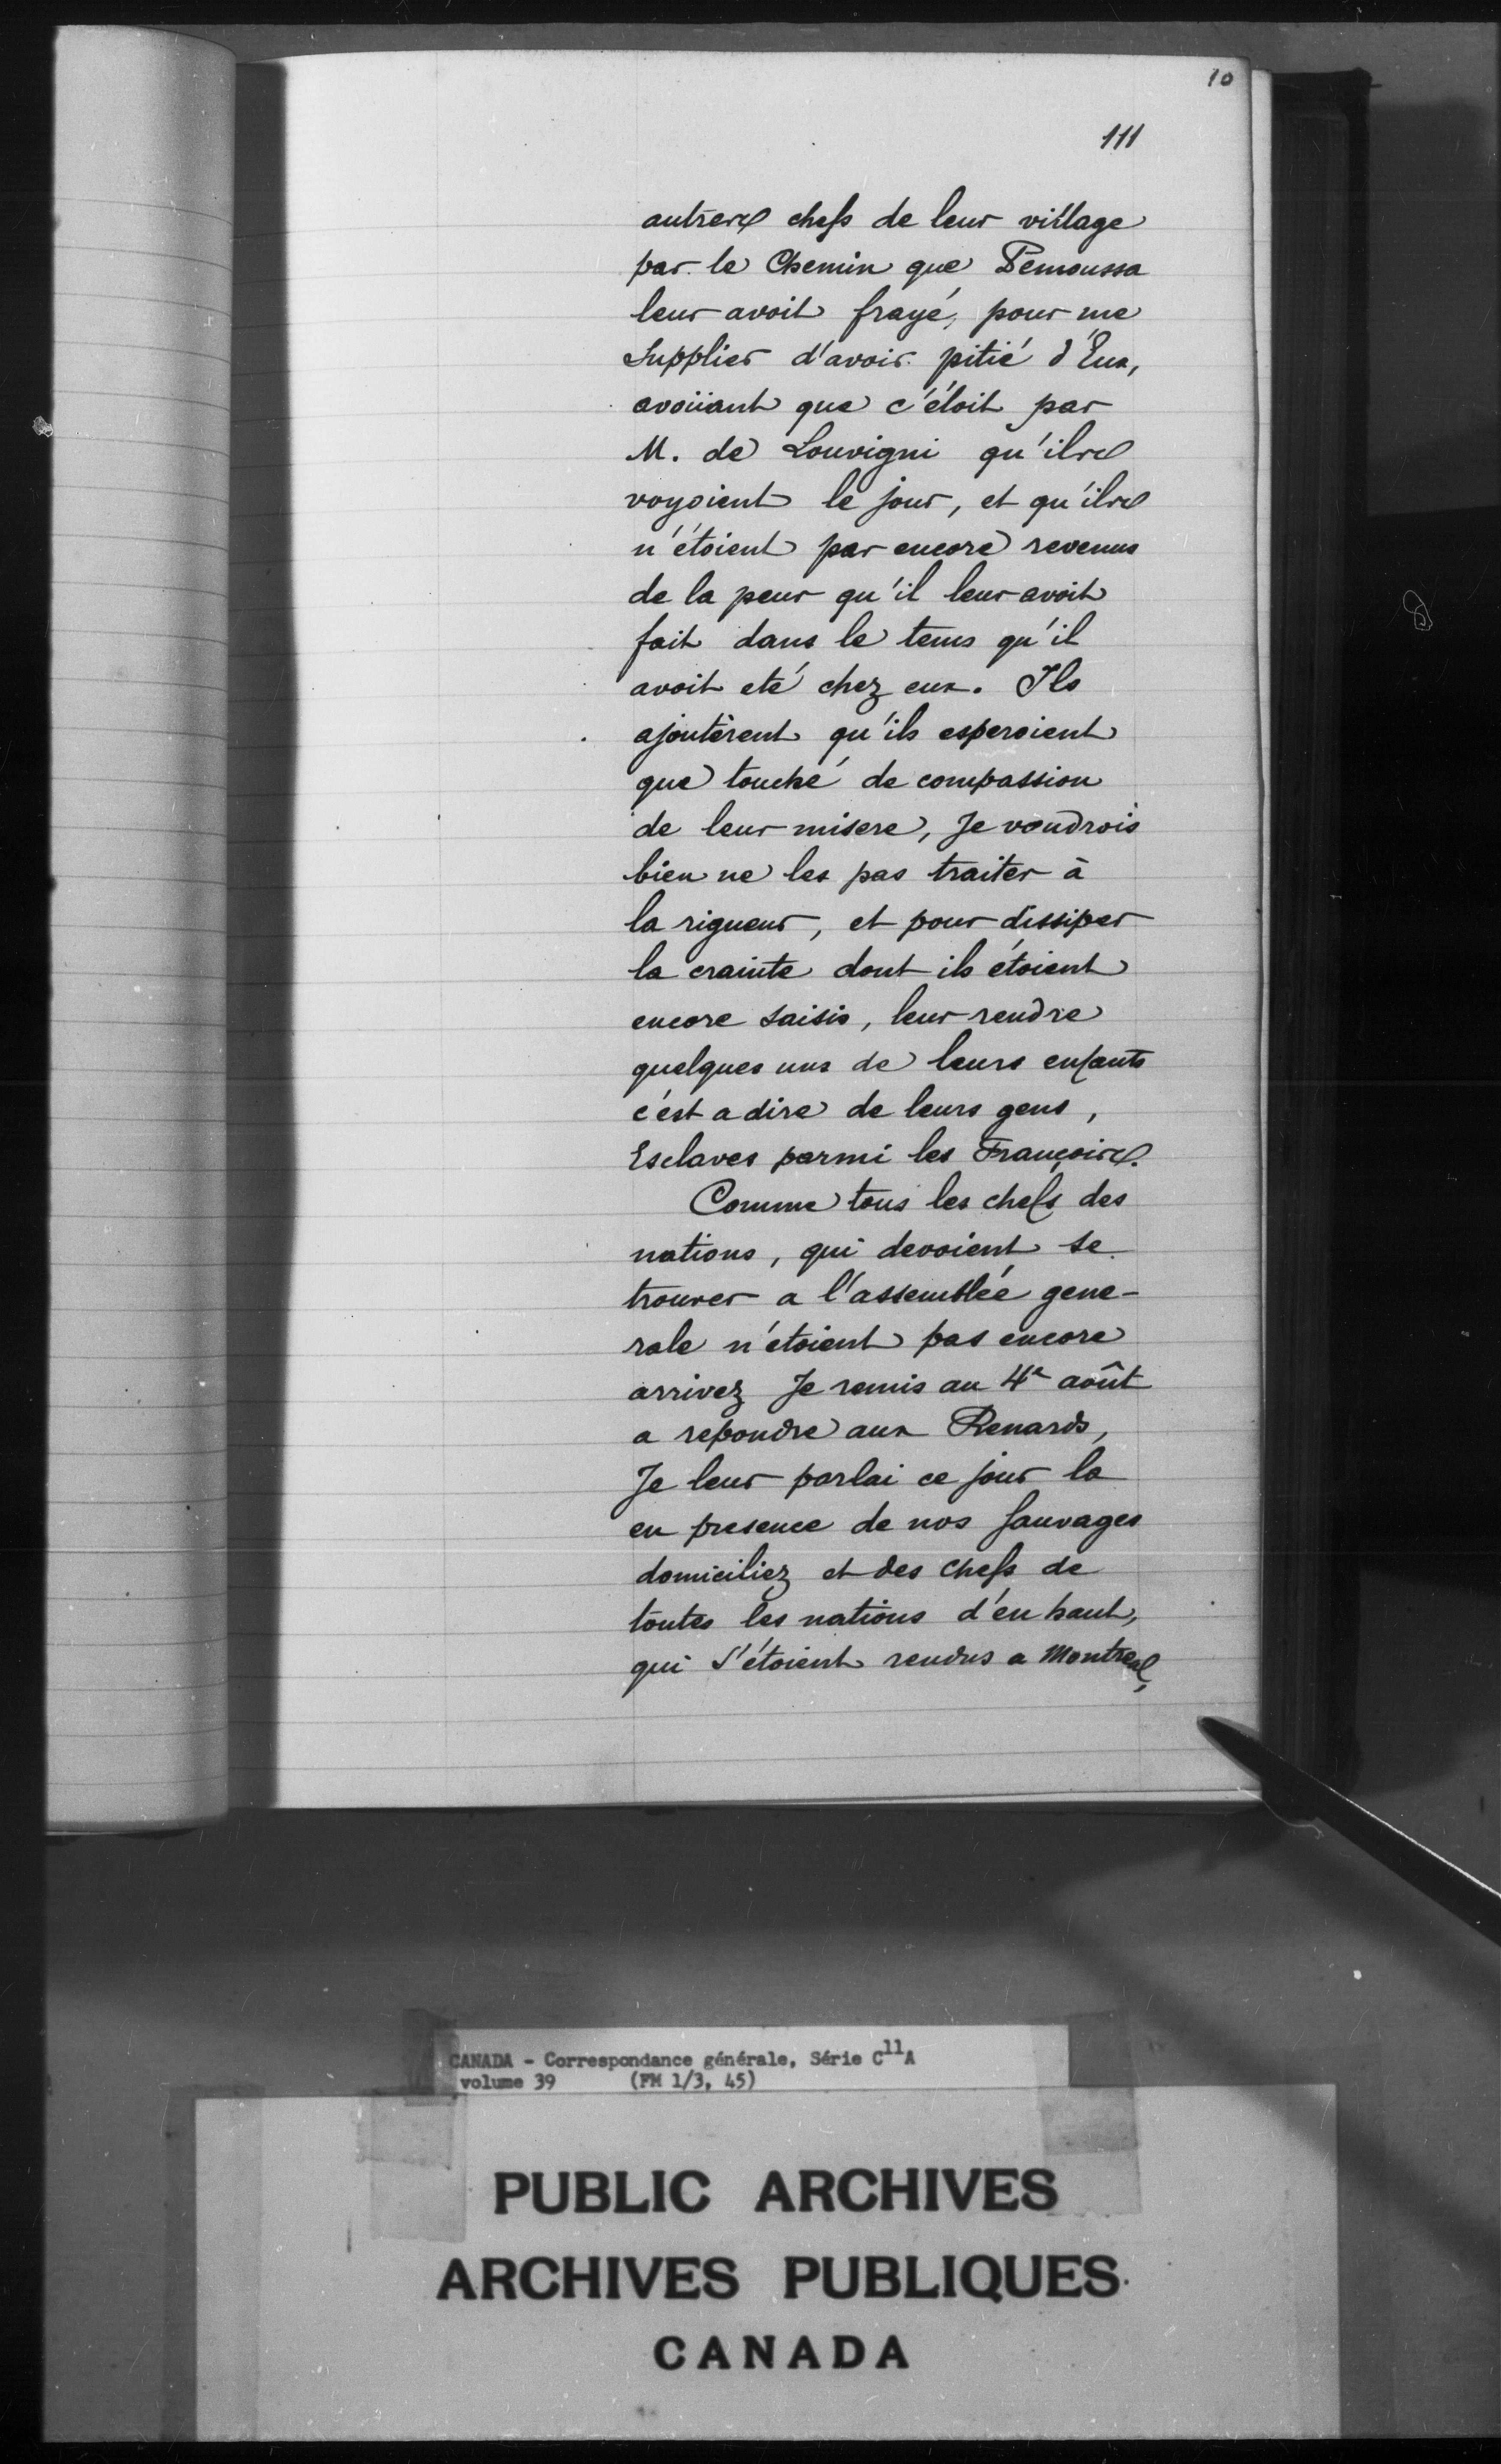 10
111
autres chefs de leur village
par le Chemin que Pemoussa
leur avoit frayé, pour me
Supplier d'avoir pitié d'Eux,
avoüant que c'étoit par
M. de Louvigni qu'ils
voyoient le jour, et qu'ils
n'étoient pas encore revenus
de la peur qu'il leur avoit
fait dans le tems qu'il
avoit eté chez eux. Ils
ajoutèrent qu'ils esperoient
que touché de compassion
de leur misere, Je voudrois
bien ne les pas traiter à
la rigueur, et pour dissiper
la crainte dont ils étoient
encore saisis, leur rendre
quelques uns de leurs enfants
c'est a dire de leurs gens,
Esclaves parmi les François.
Comme tous les chefs des
nations, qui devoient se
trouver a l'assemblée gene-
rale n'etoient pas encore
arrivez Je remis au 4e août
a repondre aux Renards,
Je leur parlai ce jour la
en presence de nos Sauvages
domiciliez et des chefs de
toutes les nations d'en haut,
qui s'étoient rendus a Montreal,
CANADA - Correspondance générale, Série C11A
volume 39 (FM 1/3, 45)
PUBLIC ARCHIVES
ARCHIVES PUBLIQUES
CANADA